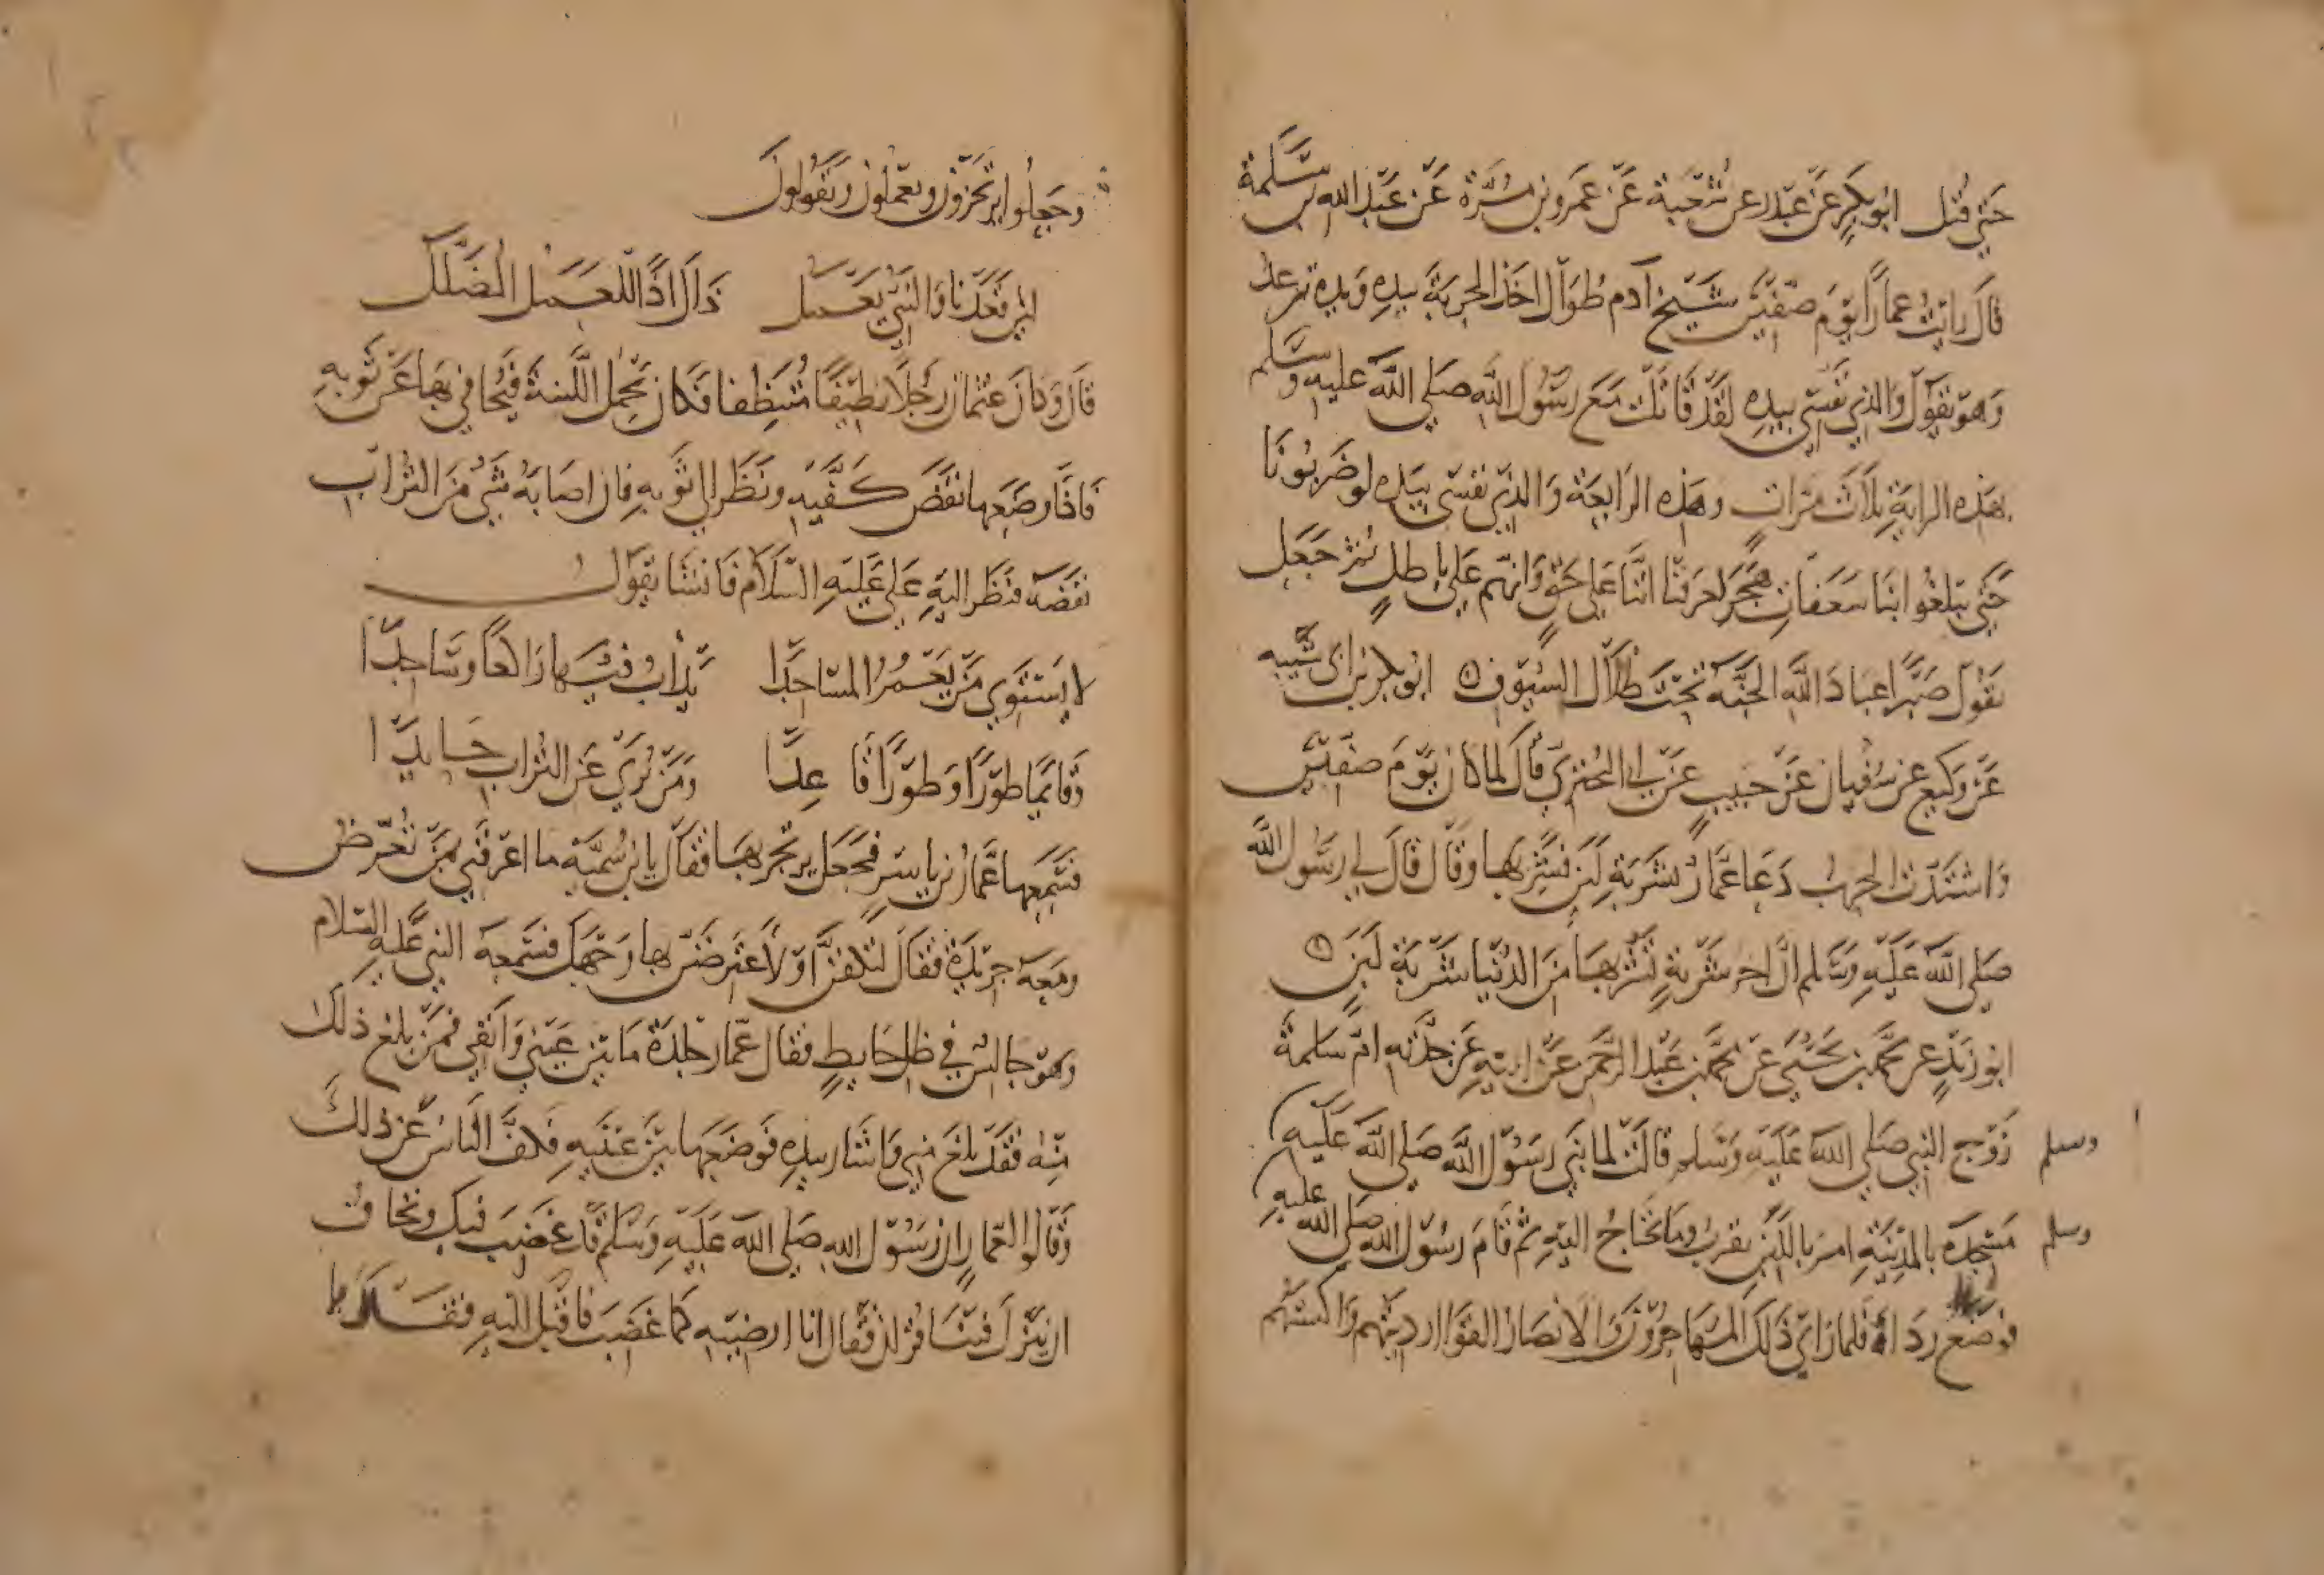 حتى قتل ابو بكر عن غندر عن شعبة عن عمرو بن مرة عن عبد الله بن سلمة
قال رايت عمارا يوم صفين شيخ آدم طوال اخذ الحربة بيده ويده ترعد
وهو يقول والذي نفسي بيده لقد قاتلت مع رسول الله صلى الله عليه وسلم
بهذه الراية ثلاث مرات وهذه الرابعة والذي نفسي بيده لو ضربونا
حتى يبلغوا بنا سعفات هجر لعرفنا اننا على حق وانهم على باطل ثم جعل
يقول صبرا عباد الله الجنة تحت ظلال السيوف ابو بكر بن ابى شيبه
عن وكيع عن سفيان عن حبيب عن ابي البختري قال لما كان يوم صفين
واشتدت الحرب دعا عمار بشربة لبن فشربها وقال قال لي رسول الله
صلى الله عليه وسلم ان اخر شربة تشربها من الدنيا شربة لبن
ابو زيد عن محمد بن يحيى عن محمد بن عبد الرحمن عن ابيه عن جدته ام سلمة
زوج النبي صلى الله عليه وسلم قالت لما بنى رسول الله صلى الله عليه
وسلم
مسجده بالمدينة امر باللبن يقرب وما يحتاج اليه ثم قام رسول الله صلى الله عليه
وسلم
فوضع رداءه فلما راى ذلك المهاجرون والانصار القوا ارديتهم واكسيتهم
وجعلوا يرتجزون ويعملون ويقولون
لئن قعدنا والنبي يعمل ذاك اذا للعمل المضلل
قال وكان عثمان رجلا نظيفا متنظفا فكان يحمل اللبنة فيجافي بها عن ثوبه
فاذا وضعها نفض كفيه ونظر الى ثوبه فان اصابه شي من التراب
نفضه فنظر اليه علي عليه السلام فانشا يقول
لا يستوي من يعمر المساجدا يداب فيها راكعا وساجدا
وقائما طورا وطورا قاعدا ومن يرى عن التراب حايدا
فسمعها عمار بن ياسر فجعل يرتجز بها فقال يا بن سمية ما اعرفني بمن تعرض
ومعه جريدة فقال لتكفن او لاعترضن بها وجهك فسمعه النبي عليه السلام
وهو جالس في ظل حايط فقال عمار جلدة ما بين عيني وانفي فمن بلغ ذلك
منه فقد بلغ مني واشار بيده فوضعها بين عينيه فكف الناس عن ذلك
وقالوا لعمار ان رسول الله صلى الله عليه وسلم قد غضب فيك ونخاف
ان ينزل فينا قران فقال انا ارضيه كما غضب فاقبل اليه فقال